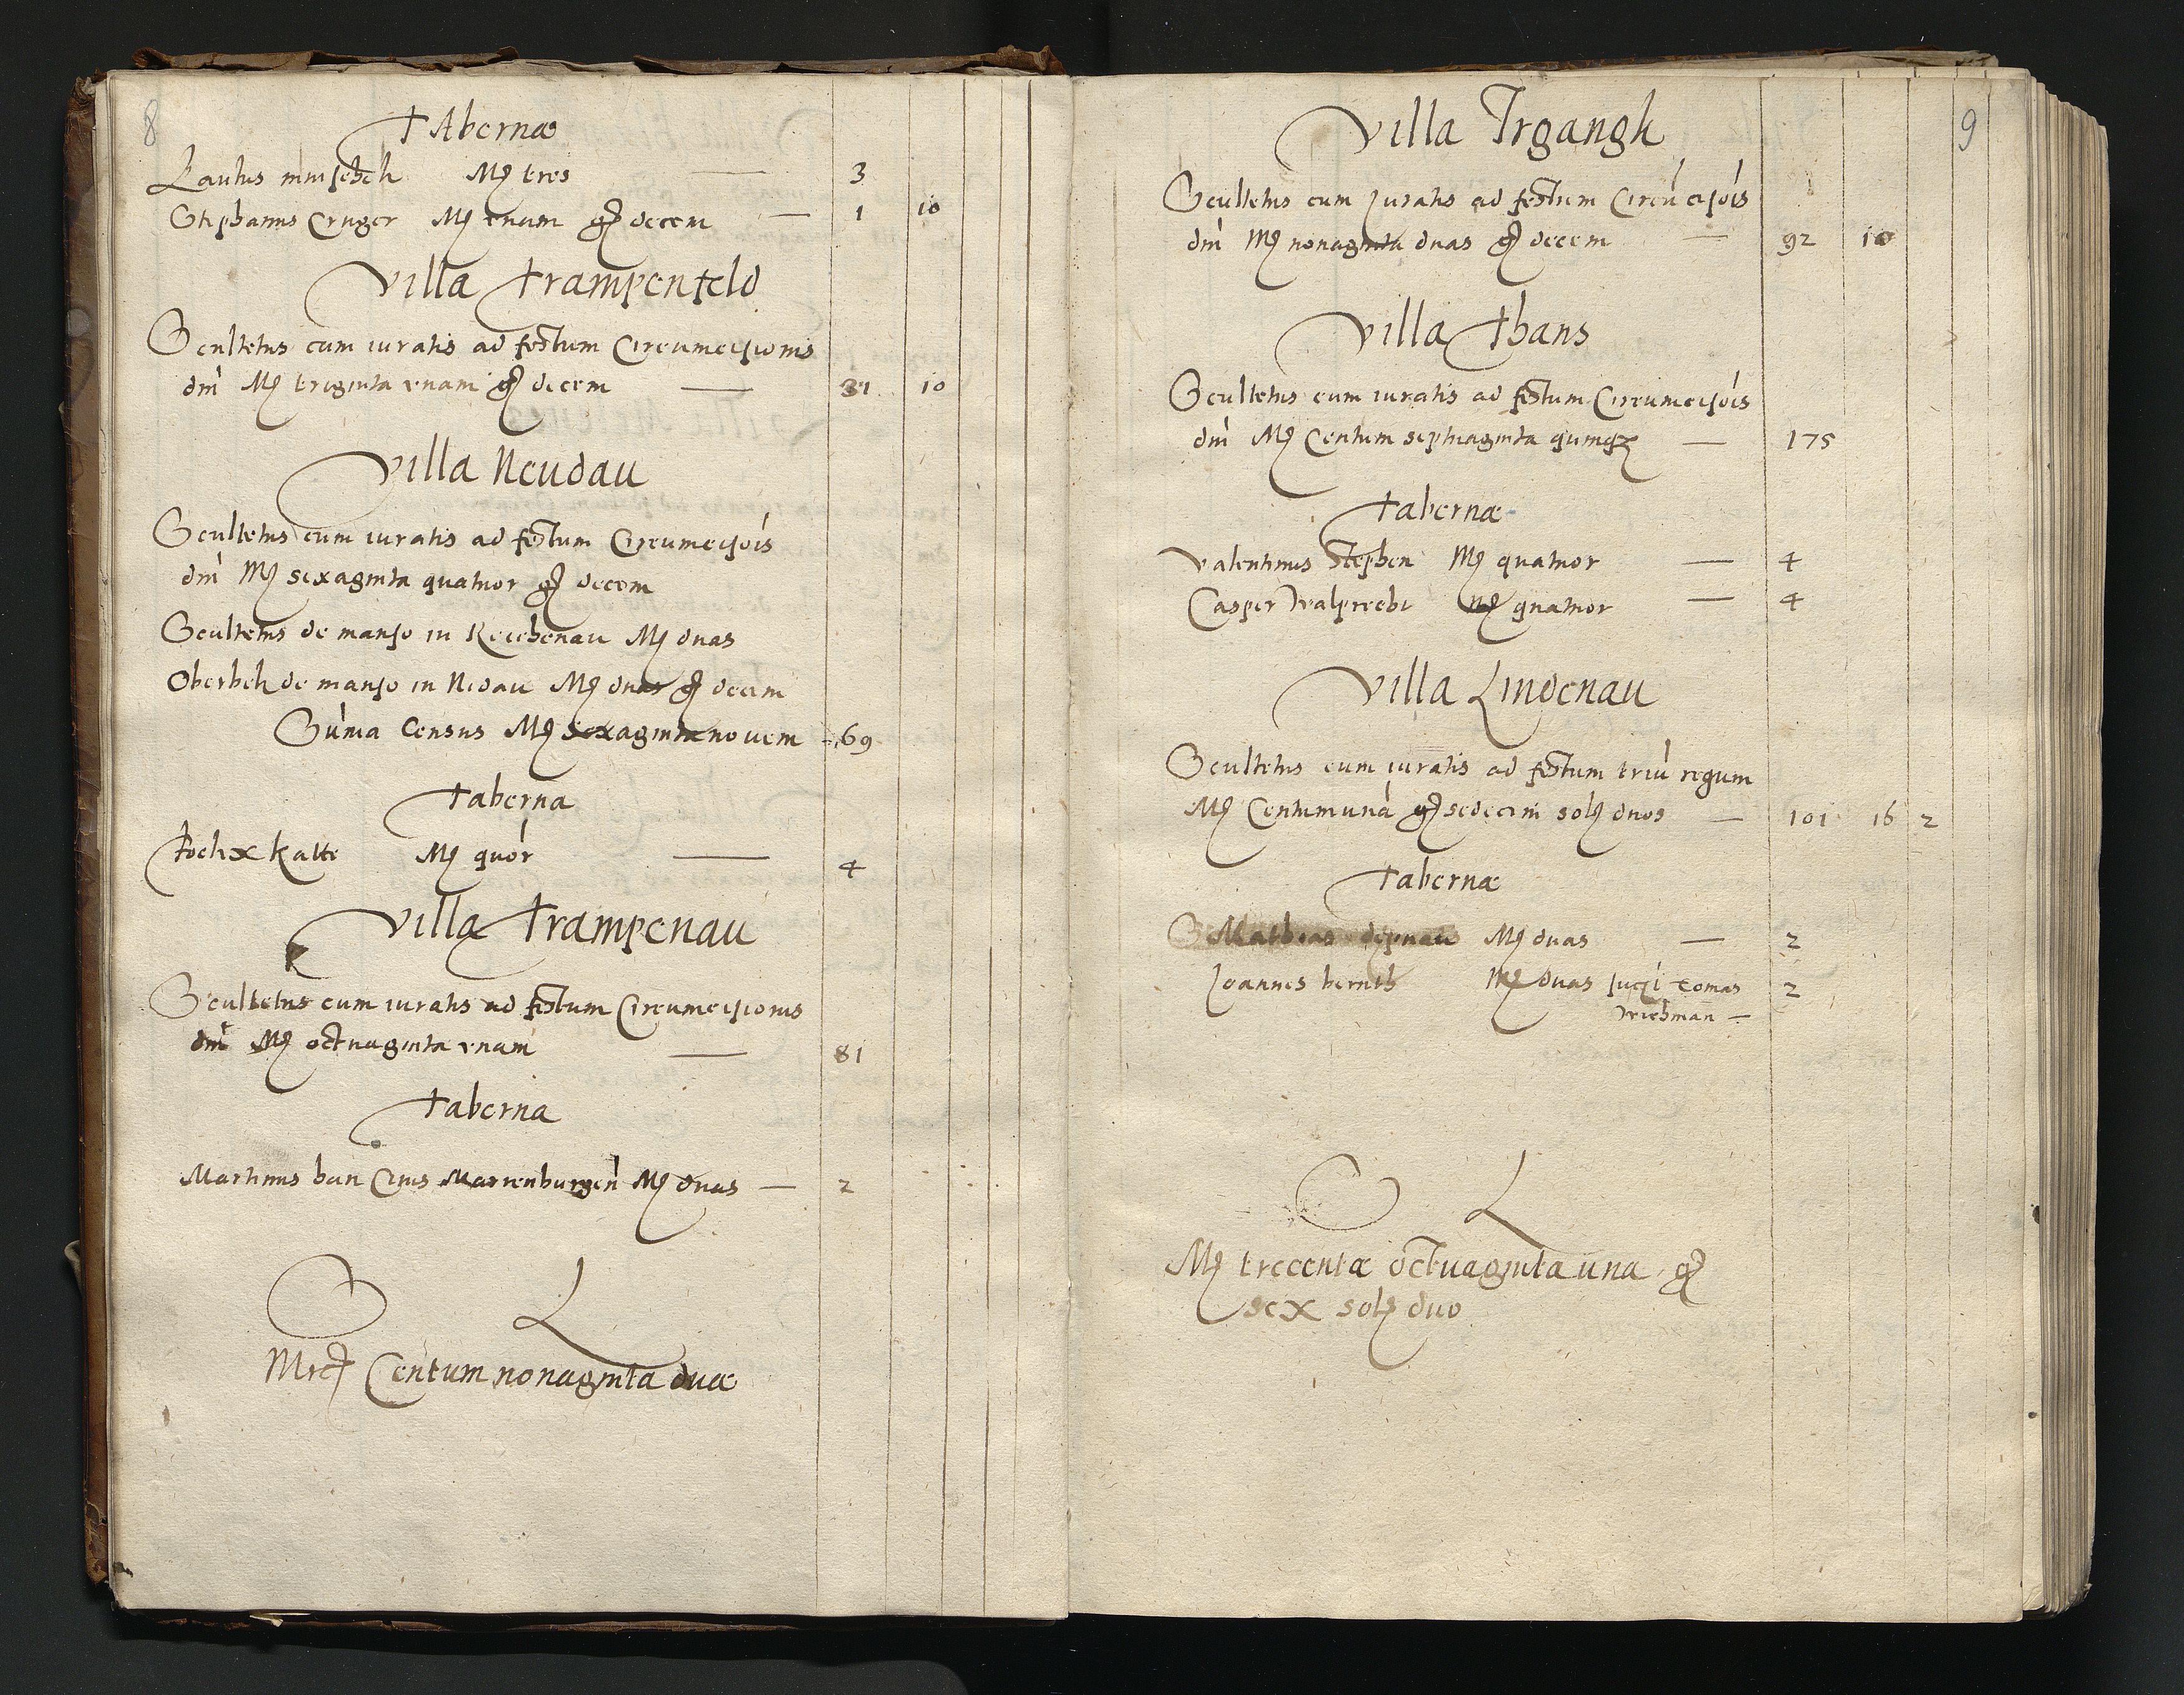 8
TAbernæ
Paulus mmschch Mꝫ tres — 3
Stephanus Cruger Mꝫ vnam gꝫ decem — 1 10
Villa Trampenfeld
Scultetus cum iuratis ad festum Circumcisionis
dni̇ Mꝫ triginta vnam gꝫ decem — 31 10
Villa Neudau
Scultetus cum iuratis ad festum Circumcisōis
dni̇ Mꝫ sexaginta quatuor gꝫ decem
Scultetus de manso in Reichenau Mꝫ duas
Oberbeh de manso in Nidau Mꝫ duas gꝫ decem
Sum̄a Census Mꝫ sexaginta novem 69
Taberna
Katte Mꝫ quo᷑r — 4
Villa Trampenau
Scultetus cum iuratis ad festum Circumcisionis
dni̇ Mꝫ octuaginta vnam — 81
Taberna
Martinus ban Ciuis Marienburgeń Mꝫ duas — 2
S L
Mrcꝫ Centum nonaginta duæ
9
Villa Irgangh
Scultetus cum iuratis ad festum Circu̅cisōis
dni̇ Mꝫ nonaginta duas gꝫ decem — 92 10
Villa Thans
Scultetus cum iuratis ad festum Circumcisōis
dni̇ Mꝫ Centum septuaginta quinqꝫ — 175
Tabernæ
Valentinus Stephen Mꝫ quatuor — 4
Casper Walprecht Mꝫ quatuor — 4
Villa Lindenau
Scultetus cum iuratis ad festum triu̅ regum
Mꝫ Centum una̅ gꝫ sedecim solꝫ duos — 101 16 2
Tabernæ
Mathias depnau Mꝫ duas — 2
Joannes bernth Mꝫ duas Tomas 2
Wichman —
S L
Mꝫ trecentæ octuaginta una gꝫ
sex solꝫ duo